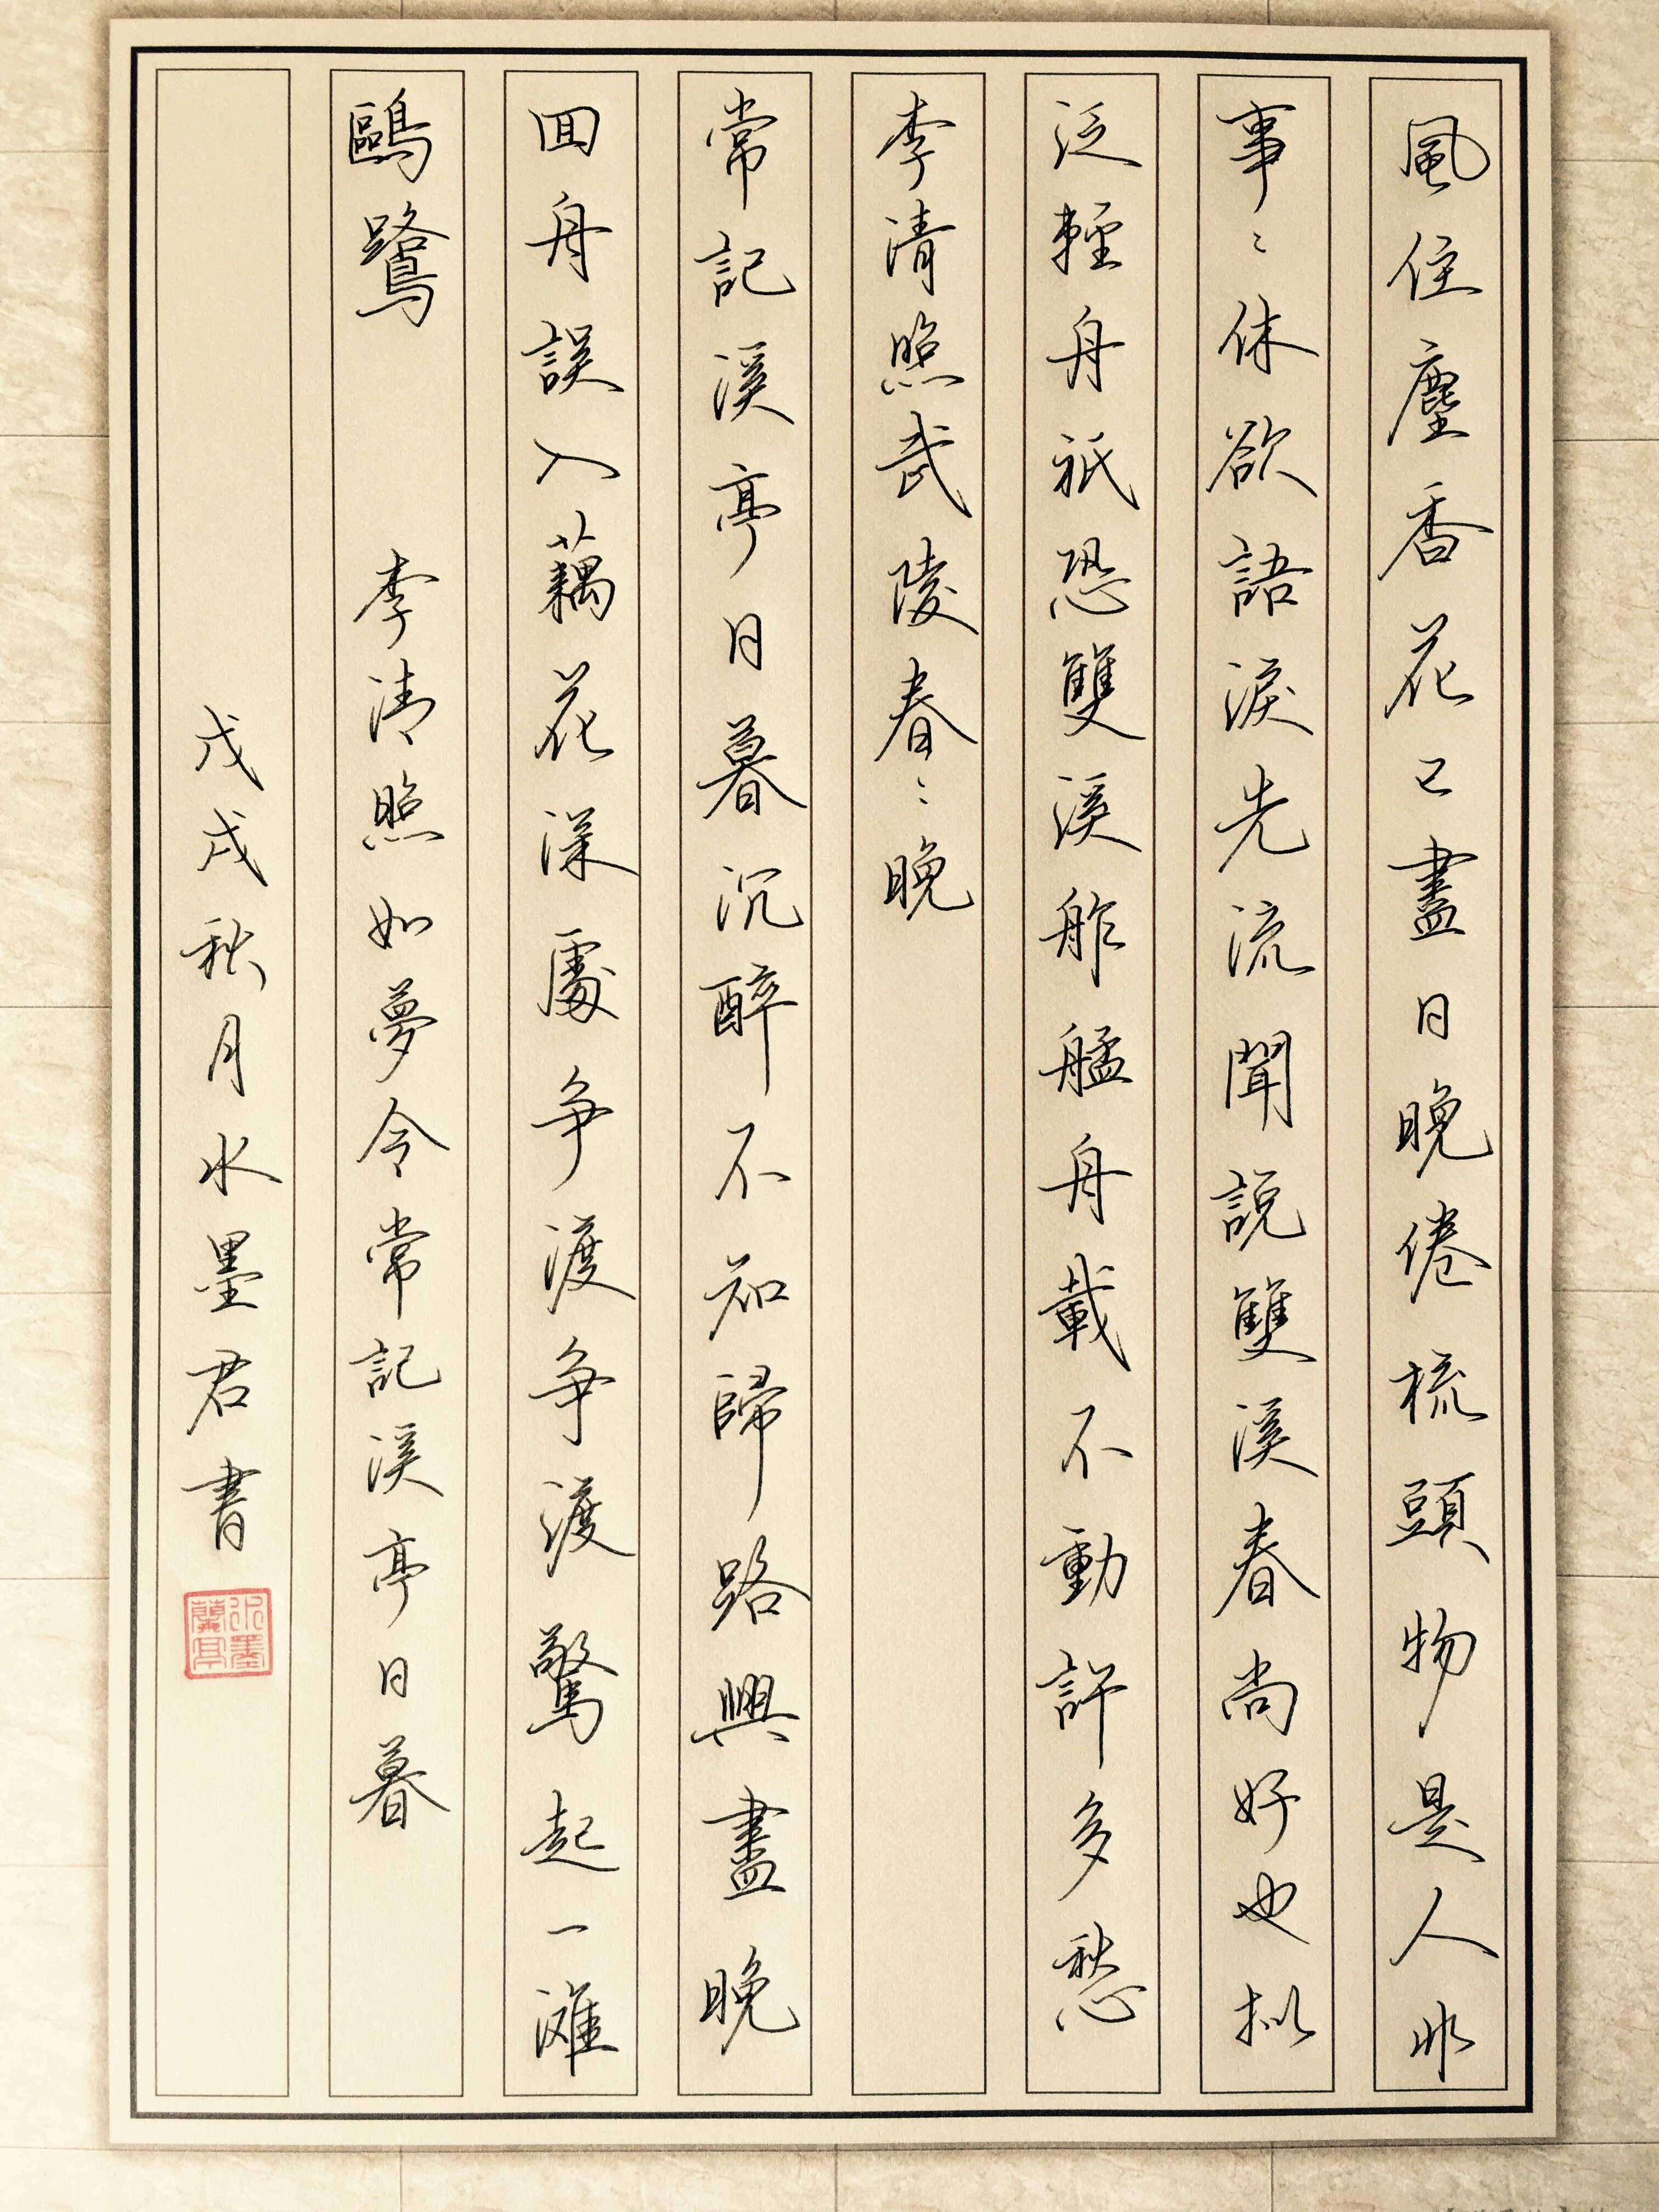 風住塵香花已盡日晚倦梳頭物是人非
事〻休欲語淚先流聞說雙溪春尚好也拟
泛輕舟祇恐雙溪舴艋舟載不動許多愁
李清照武陵春〻晚
常記溪亭日暮沉醉不知歸路興盡晚
回舟誤入藕花深處争渡争渡驚起一滩
鷗鷺 李清照如夢令常記溪亭日暮
戊戌秋月水墨君書
水墨蘭亭